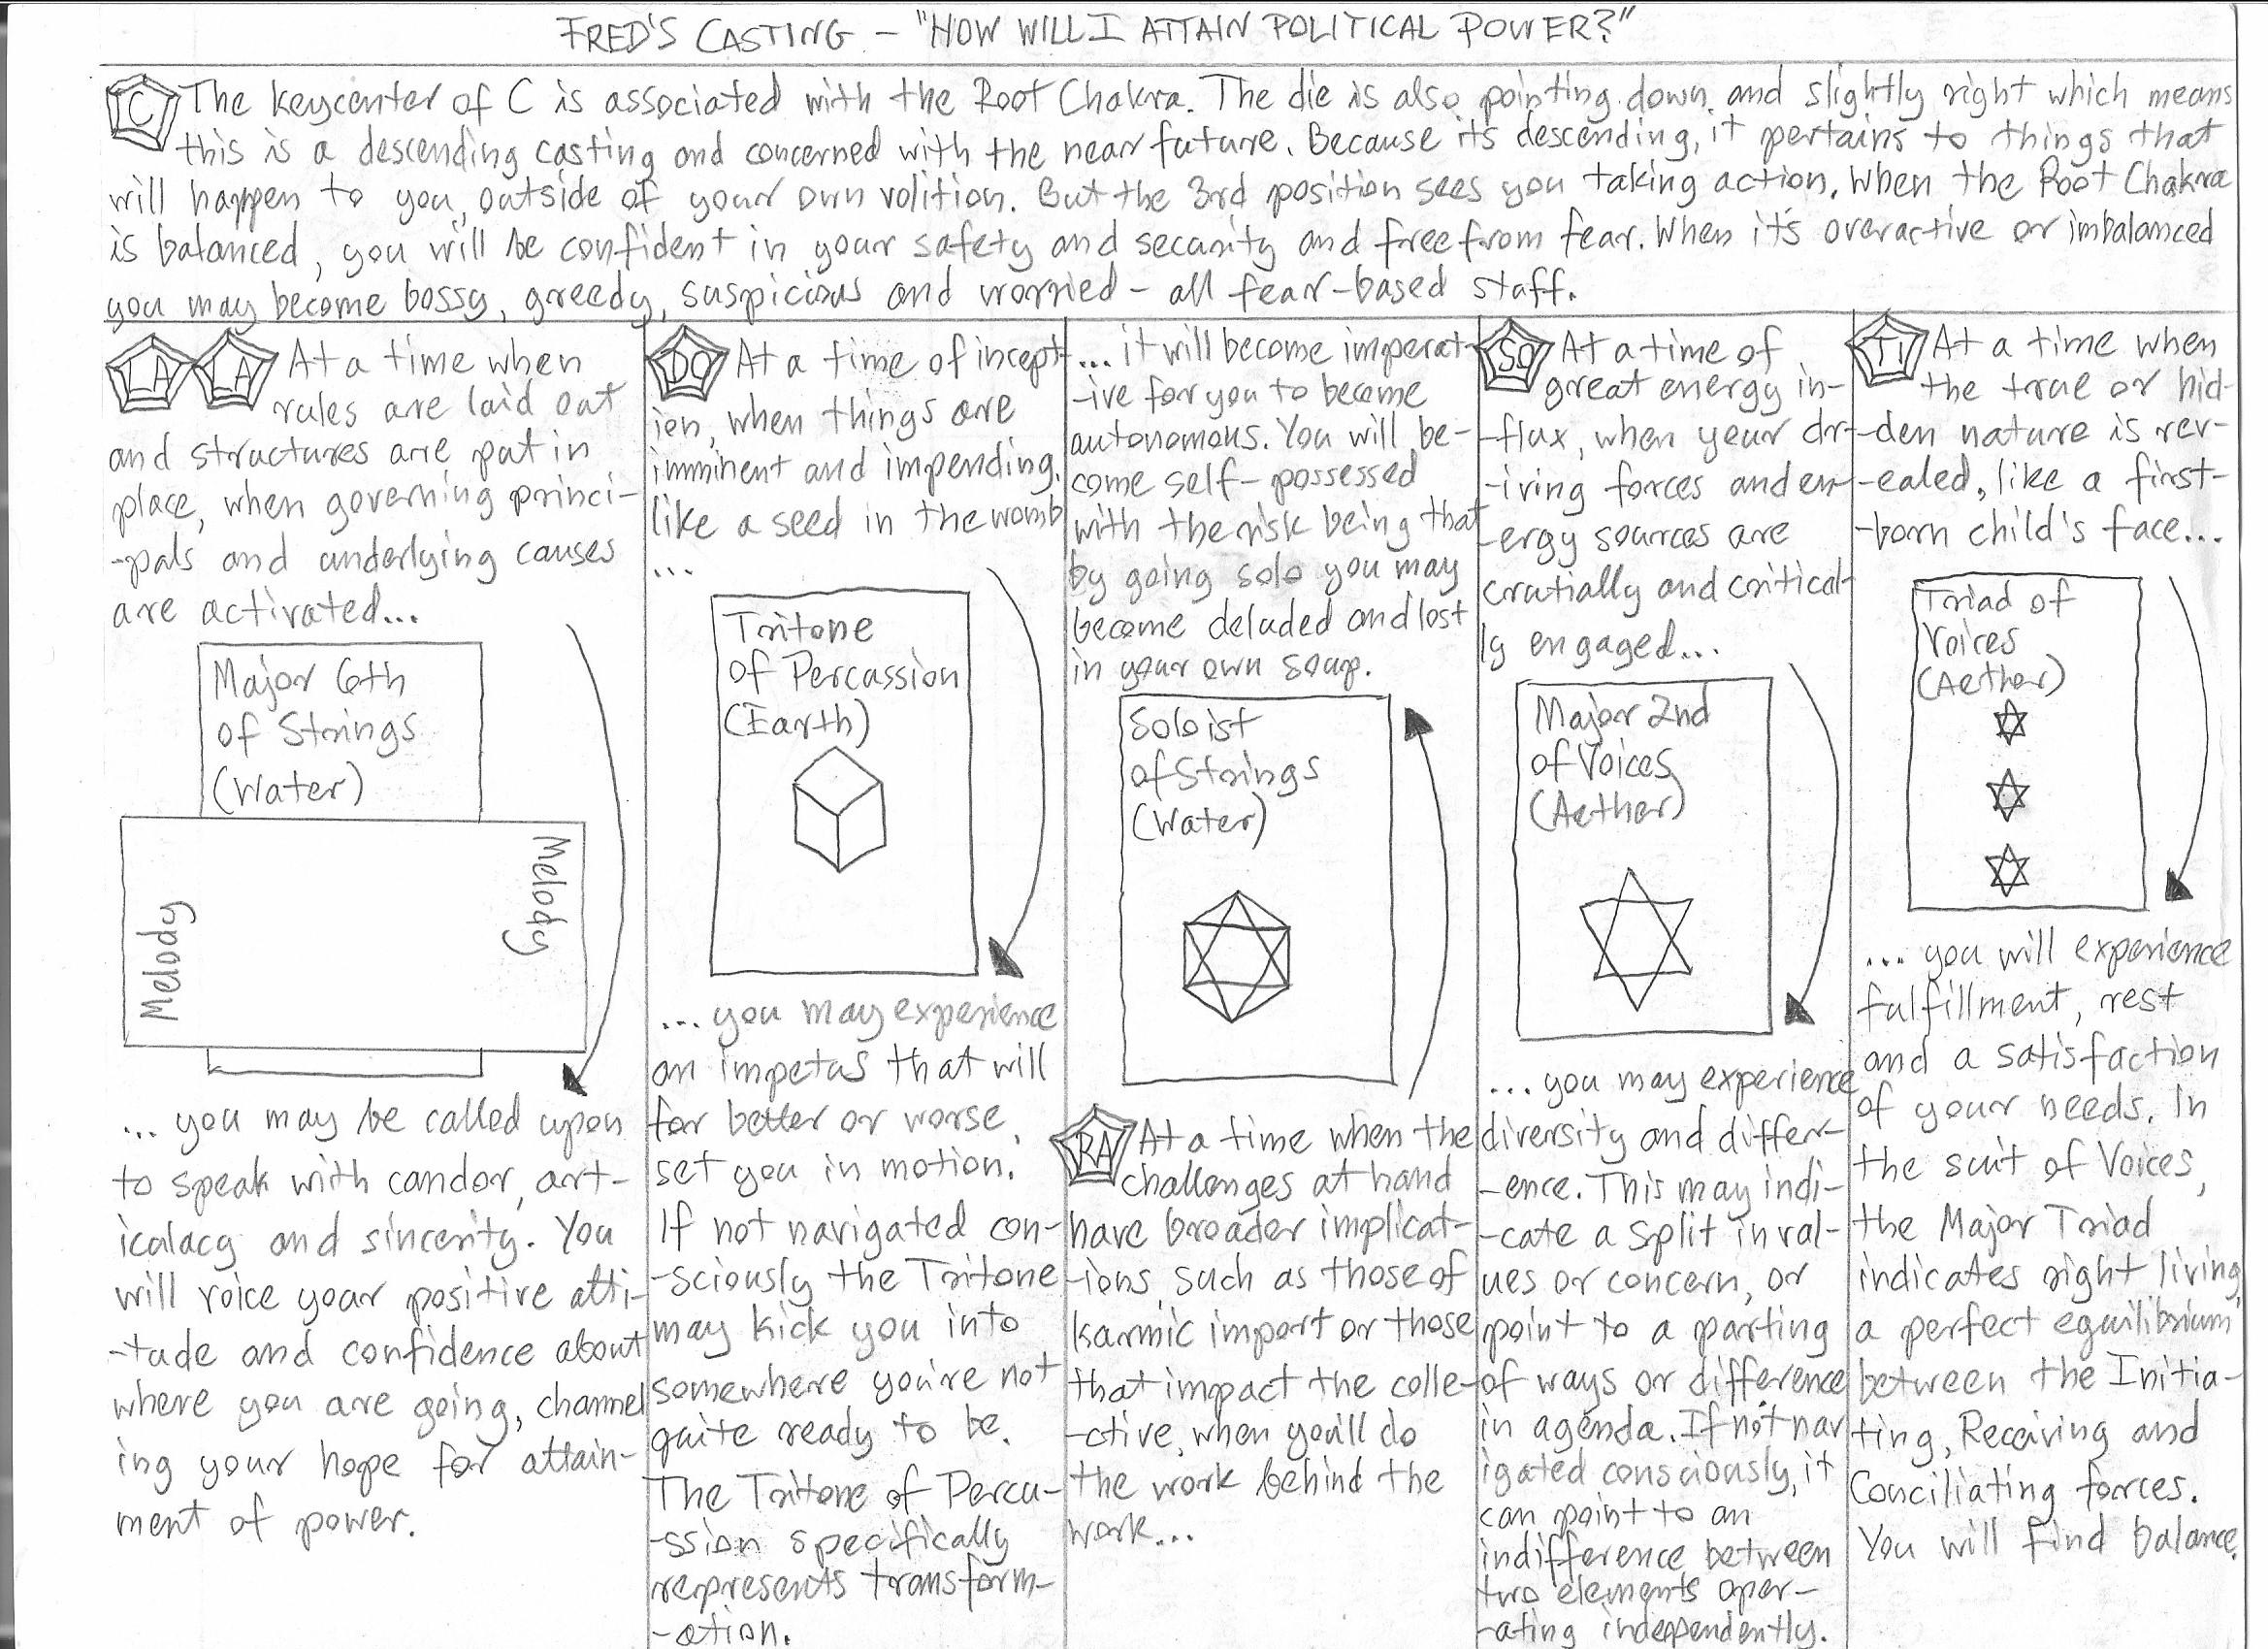 FRED'S CASTING – "HOW WILL I ATTAIN POLITICAL POWER?"
C The keycenter of C is associated with the Root Chakra. The die is also pointing down and slightly right which means
this is a descending casting and concerned with the near future. Because its descending, it pertains to things that
will happen to you, outside of your own volition. But the 3rd position sees you taking action. When the Root Chakra
is balanced, you will be confident in your safety and security and free from fear. When it's overactive or imbalanced
you may become bossy, greedy, suspicious and worried – all fear-based stuff.
LA LA At a time when
rules are laid out
and structures are put in
place, when governing princi-
-pals and underlying causes
are activated...
Major 6th
of Strings
(Water)
Melody
Melody
... you may be called upon
to speak with candor, art-
iculacy and sincerity. You
will voice your positive atti-
-tude and confidence about
where you are going, channel
ing your hope for attain-
ment of power.
DO At a time of incept-
ion, when things are
imminent and impending,
like a seed in the womb
...
Tritone
of Percussion
(Earth)
... you may experience
an impetus that will
for better or worse,
set you in motion.
If not navigated con-
-sciously the Tritone
may kick you into
somewhere you're not
quite ready to be.
The Tritone of Percu-
-ssion specifically
represents transform-
-ation.
... it will become imperat-
-ive for you to become
autonomous. You will be-
come self-possessed
with the risk being that
by going solo you may
become deluded and lost
in your own soup.
Soloist
of Strings
(Water)
RA At a time when the
challenges at hand
have broader implicat-
-ions, such as those of
karmic import or those
that impact the colle-
-ctive, when you'll do
the work behind the
work...
SO At a time of
great energy in-
-flux, when your dr-
-iving forces and en-
-ergy sources are
crutially and critical-
ly engaged...
Major 2nd
of Voices
(Aether)
... you may experience
diversity and differ-
-ence. This may indi-
-cate a split in val-
ues or concern, or
point to a parting
of ways or difference
in agenda. If not nav
igated consciously, it
can point to an
indifference between
two elements oper-
-ating independently.
TI At a time when
the true or hid-
-den nature is rev-
-ealed, like a first-
-born child's face...
Triad of
Voices
(Aether)
... you will experience
fulfillment, rest
and a satisfaction
of your needs. In
the suit of Voices,
the Major Triad
indicates right living,
a perfect equilibrium
between the Initia-
ting, Receiving and
Conciliating forces.
You will find balance.